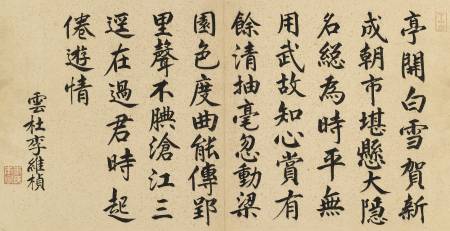 亭開白雪賀新
成朝市堪懸大隱
名總為時平無
用武故知心賞有
餘清抽毫忽動梁
園色度曲能傳郢
里聲不腆滄江三
逕在過君時起
倦遊情
雲杜李維楨